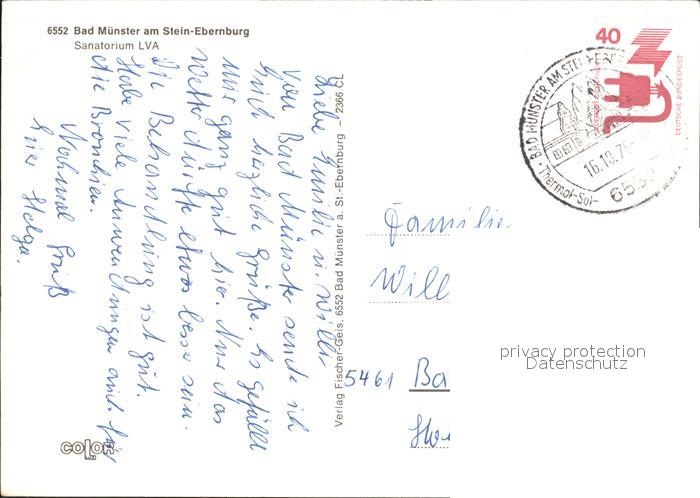 6552 Bad Münster am Stein-Ebernburg
Sanatorium LVA
Liebe Emilie u. Willi
Von Bad Münster sende ich
Euch herzliche Grüße. Es gefällt
mir ganz gut hier. Nur das
Wetter dürfte etwas besser sein.
Die Behandlung ist gut.
Habe viele Anwendungen auch für
die Bronchien.
Nochmal Gruß
Euer Helga.
COLOR
Verlag Fischer-Geis, 6552 Bad Münster a. St.-Ebernburg – 2366 CL
40
DEUTSCHE BUNDESPOST
BAD MÜNSTER AM STEIN-EBER
16.10.75
Thermal-Sol-
655
Familie
Will
5461 Ba
privacy protection
Datenschutz